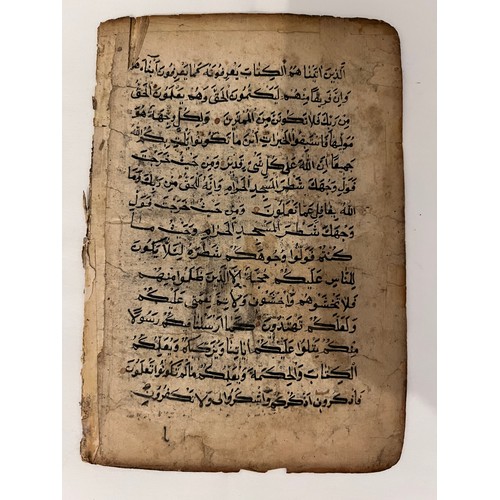 الذين اتيناهم الكتاب يعرفونه كما يعرفون ابناءهم
وان فريقا منهم ليكتمون الحق وهم يعلمون الحق
من ربك فلا تكونن من الممترين ولكل وجهة هو
موليها فاستبقوا الخيرات اين ما تكونوا يات بكم الله
جميعا ان الله على كل شىء قدير ومن حيث خرجت
فول وجهك شطر المسجد الحرام وانه للحق من ربك وما
الله بغافل عما تعملون ومن حيث خرجت فول
وجهك شطر المسجد الحرام وحيث ما
كنتم فولوا وجوهكم شطره ليلا يكون
للناس عليكم حجة الا الذين ظلموا منهم
فلا تخشوهم واخشون ولاتم نعمتى عليكم
ولعلكم تهتدون كما ارسلنا فيكم رسولا
منكم يتلوا عليكم اياتنا ويزكيكم ويعلمكم
الكتاب والحكمة ويعلمكم ما لم تكونوا تعلمون
فاذكرونى اذكركم واشكروا لى ولا تكفرون